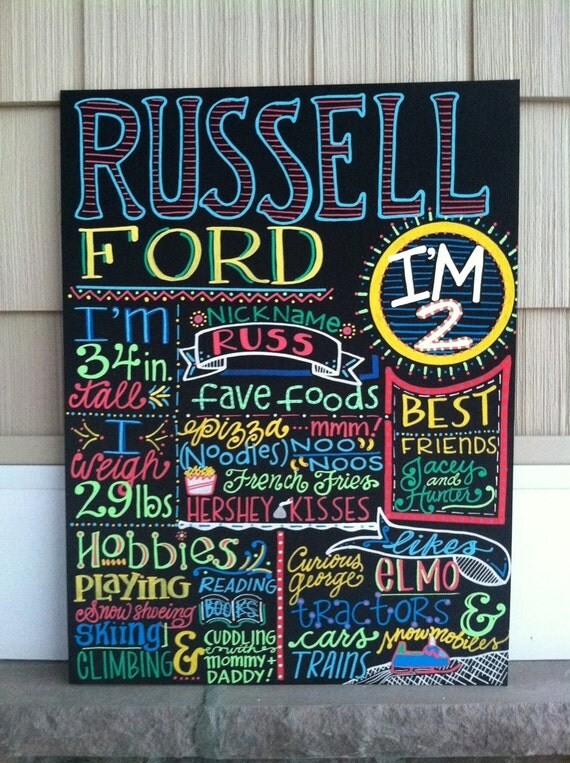 RUSSELL
FORD
I'M
2
I'm
34 in.
tall
I
weigh
29 lbs
NICKNAME
RUSS
fave foods
pizza ...mmm!
(Noodles) NOO
"NOOS
French Fries
HERSHEY KISSES
BEST
FRIENDS
Jacey
and
Hunter
Hobbies
PLAYING
Snow shoeing
SKIING
CLIMBING &
READING
BOOKS
CUDDLING
with
mommy +
DADDY!
likes
Curious
george
ELMO
tractors &
cars
snowmobiles
TRAINS